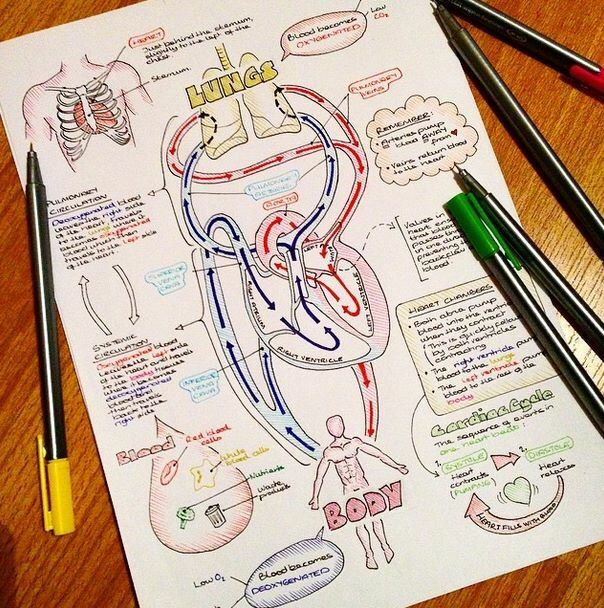 HEART
Just behind the sternum,
slightly to the left of the
chest.
Sternum
Blood becomes
OXYGENATED
Low
CO₂
LUNGS
PULMONARY
VEINS
REMEMBER:
• Arteries pump
blood AWAY
from ♥
• Veins return blood
to the heart
PULMONARY
CIRCULATION
Deoxygenated blood
leaves the right side
of the heart, travels
to the lungs where it
becomes oxygenated
blood which then
travels to the left side
of the heart.
PULMONARY
ARTERIES
AORTA
Valves in
heart
that blood
passes
in one
preventing
backflow
blood
SUPERIOR
VENA
CAVA
RIGHT ATRIUM
LEFT
LEFT VENTRICLE
RIGHT VENTRICLE
SYSTEMIC
CIRCULATION
Oxygenated blood
leaves the left side
of the heart & travels
to the body tissues
where it becomes
deoxygenated
blood and
then travels
back to the
right side
INFERIOR
VENA
CAVA
HEART CHAMBERS
• Both atria pump
blood into the
when they contract
• This is quickly followed
by both ventricles
contracting
• The right ventricle pumps
blood to the lungs
• The left ventricle pumps
blood to the rest of the
body
Cardiac Cycle
The sequence of events in
one heart beat:
1. SYSTOLE
Heart
contracts
PUMPING
2. DIASTOLE
Heart
relaxes
HEART FILLS WITH BLOOD
Blood
Red blood
cells
White
blood cells
Nutrients
Waste
products
BODY
Low O₂
Blood becomes
DEOXYGENATED